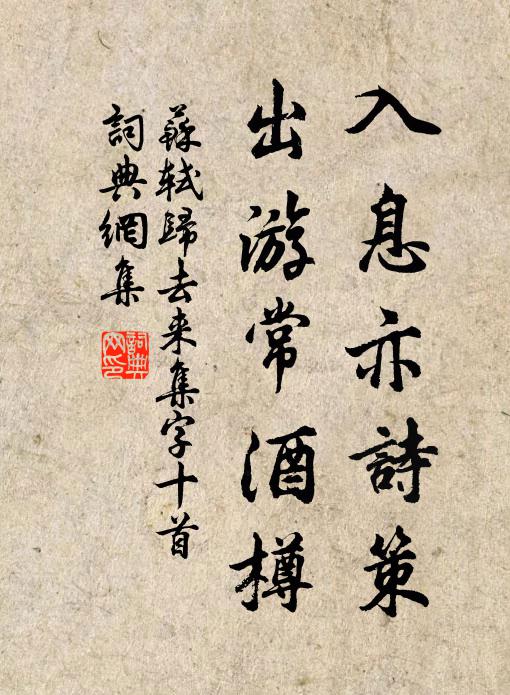 入息亦詩策
出游常酒樽
蘇軾歸去来集字十首
詞典網集
詞典
网印